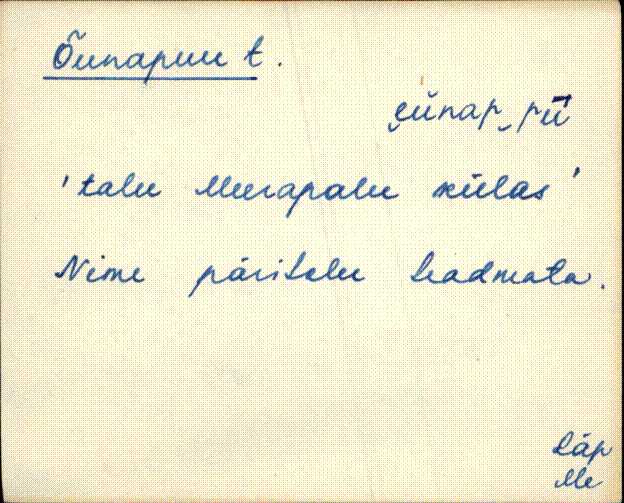 Õunapuu t.
e̮ŭnap‿pū
'talu Meerapalu külas'
Nime päritolu teadmata.
Räp
Me